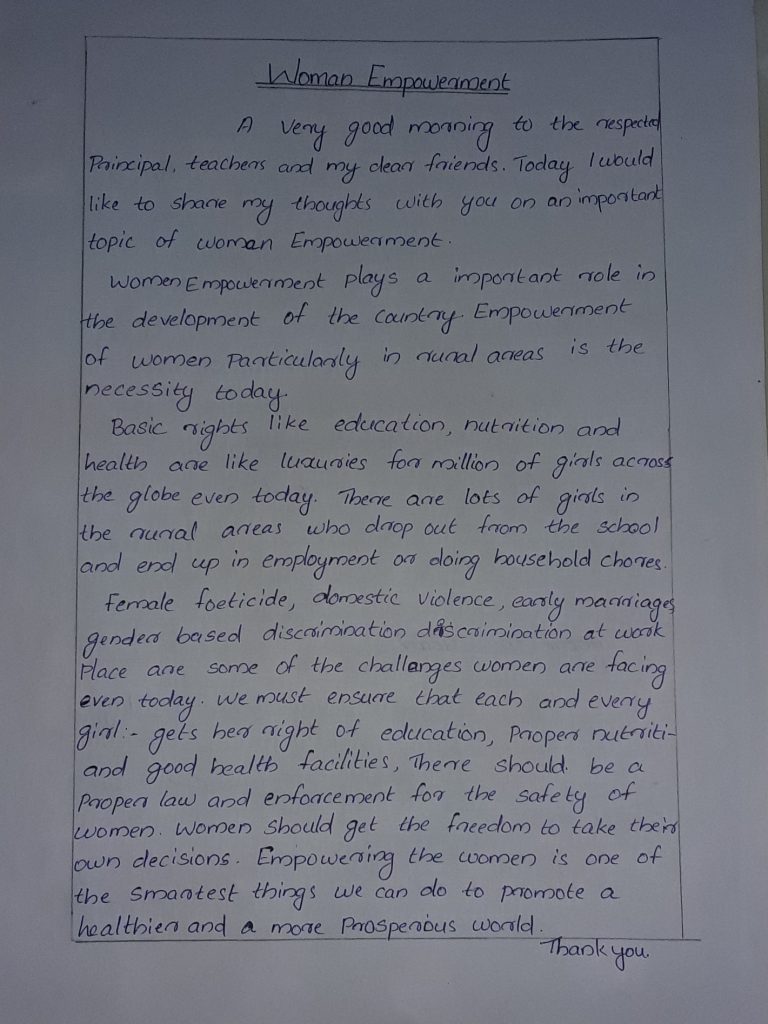 Woman Empowerment
A very good morning to the respected
Principal, teachers and my dear friends. Today I would
like to share my thoughts with you on an important
topic of woman Empowerment.
Women Empowerment plays a important role in
the development of the country. Empowerment
of women Particularly in rural areas is the
necessity today.
Basic rights like education, nutrition and
health are like luxuries for million of girls across
the globe even today. There are lots of girls in
the rural areas who drop out from the school
and end up in employment or doing household chores.
Female foeticide, domestic violence, early marriages
gender based discrimination discrimination at work
Place are some of the challenges women are facing
even today. We must ensure that each and every
girl:- gets her right of education, Proper nutriti-
and good health facilities, There should be a
Proper law and enforcement for the safety of
women. Women should get the freedom to take their
own decisions. Empowering the women is one of
the smartest things we can do to promote a
healthier and a more Prosperious world.
Thank you.